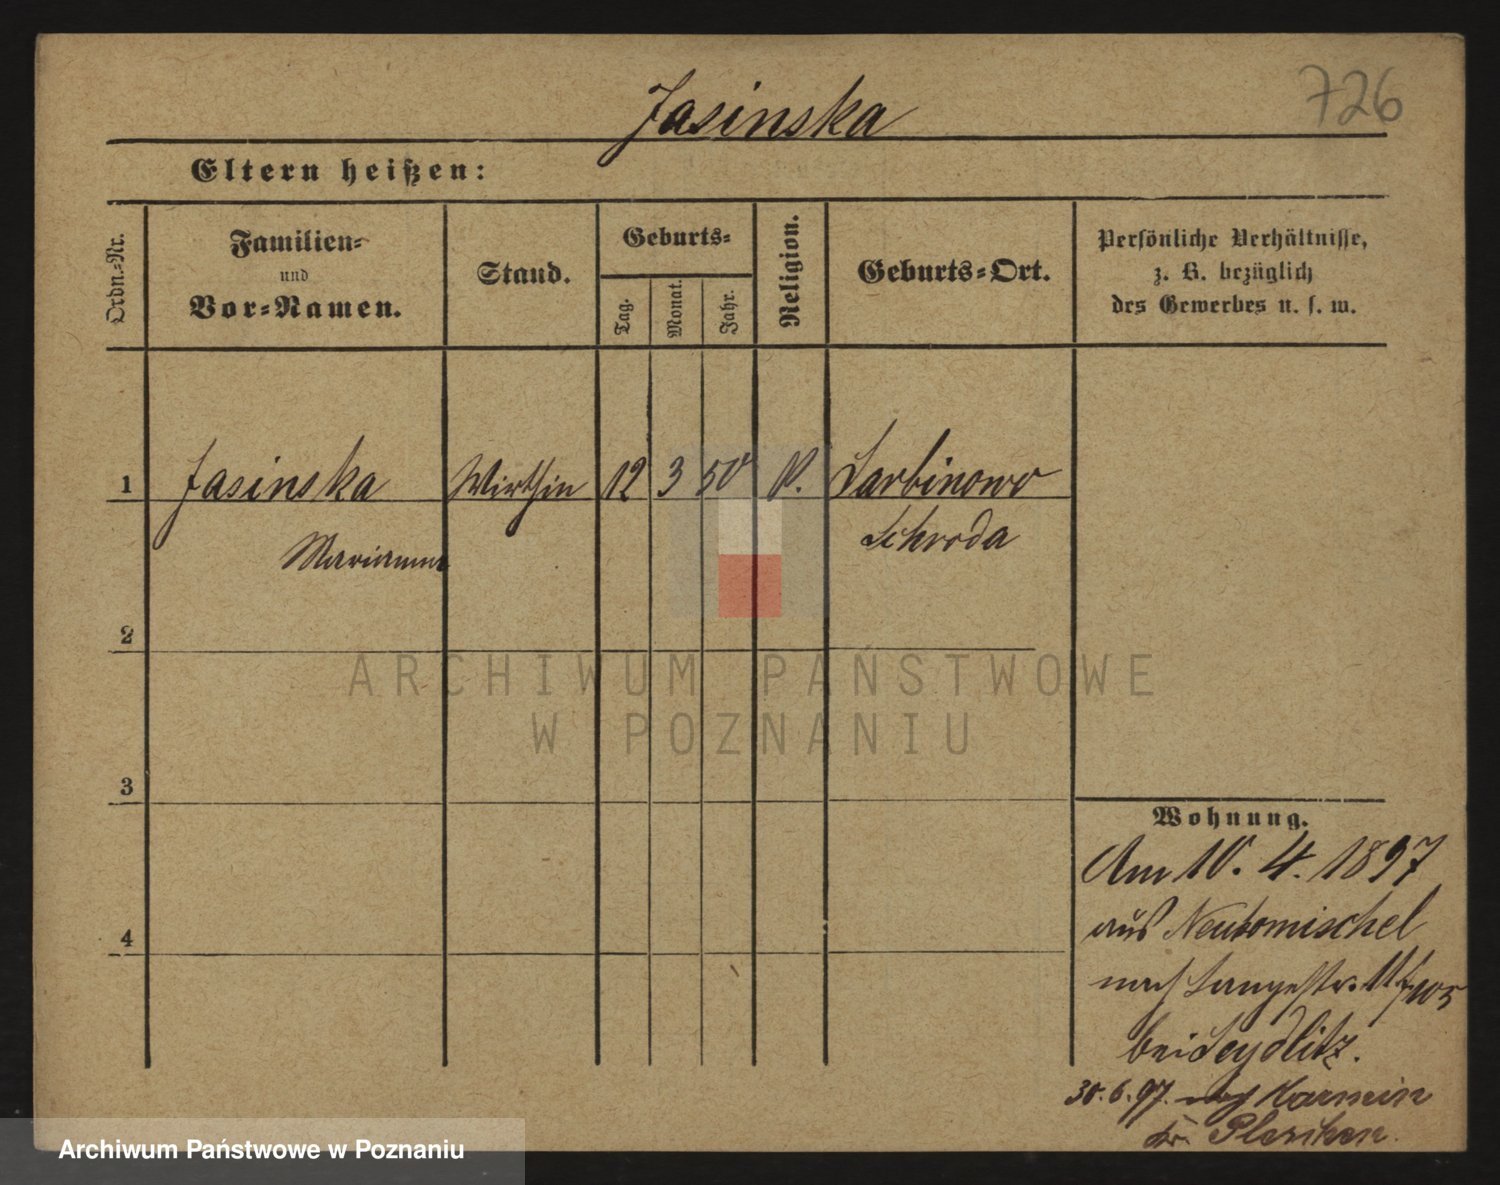 Jasinska
726
Eltern heißen:
Ordn.-Nr.
Familien-
und
Vor-Namen.
Stand.
Geburts-
Tag.
Monat.
Jahr.
Religion.
Geburts-Ort.
Persönliche Verhältnisse,
z. B. bezüglich
des Gewerbes u. s. w.
1 Jasinska Wirthin 12 3 50 K. Sarbinowo
Marianna Schroda
2
3
4
Wohnung.
Am 10. 4. 1897
aus Neutomischel
nach Langestr. 11
bei Seydlitz.
30.6.97. nach Karmin
Kr. Pleschen.
ARCHIWUM PAŃSTWOWE
W POZNANIU
Archiwum Państwowe w Poznaniu